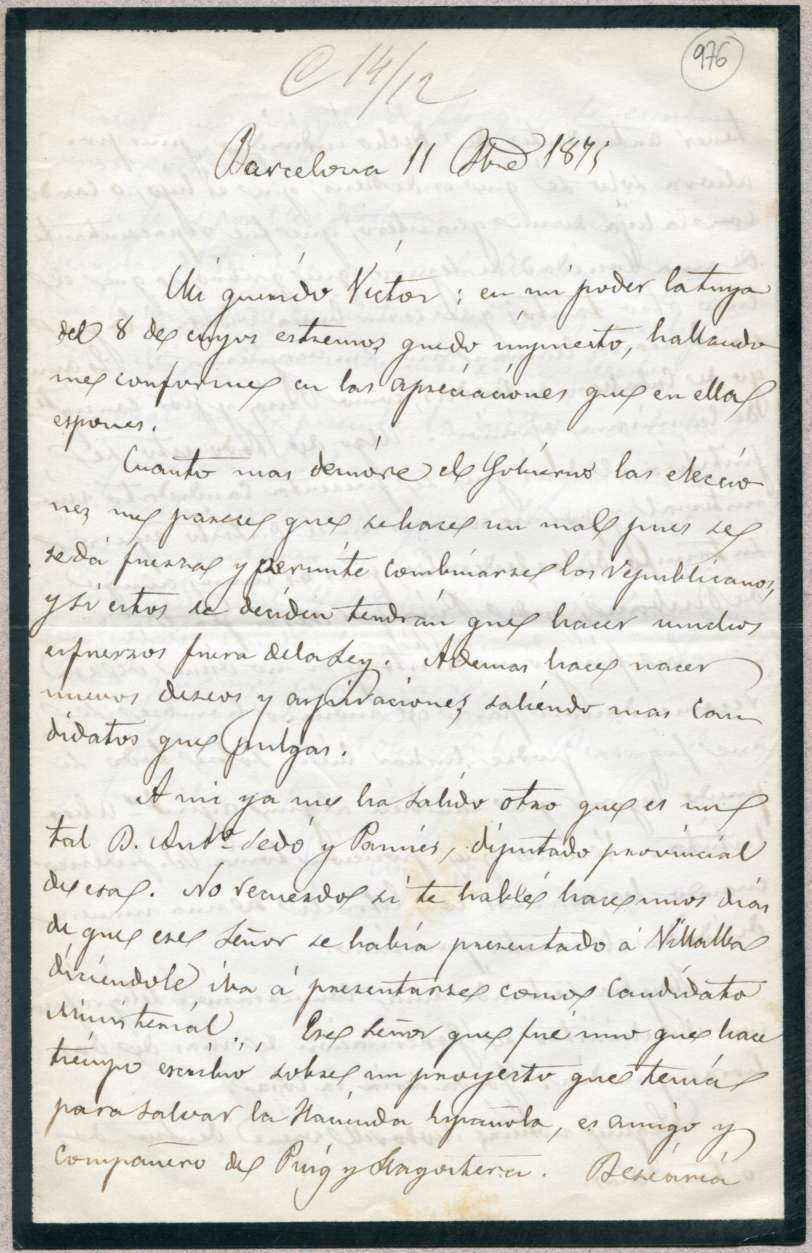 976
C 14/12
Barcelona 11 Obre 1875
Mi querido Víctor: en mi poder la tuya
del 8 de cuyos estremos quedo impuesto, hallando
me conforme en las apreciaciones que en ella
espones.
Cuanto mas demóre el Gobierno las eleccio
nes me parece que se hace un mal pues se
se dá fuerza y permite combinarse los republicanos,
y si estos se deciden tendrán que hacer muchos
esfuerzos fuera de la Ley. Ademas hace nacer
nuevos deseos y aspiraciones saliendo mas can
didatos que pulgas.
A mi ya me ha salido otro que es un
tal D. Antº Sedó y Pamies, diputado provincial
de esa. No recuerdo si te hablé hace unos dias
de que ese Señor se había presentado á Villalba
diciendole iba á presentarse como Candidato
Ministerial. Ese Señor que fué uno que hace
tiempo escribió sobre un proyecto que tenía
para salvar la Hacienda Española, es amigo y
compañero de Puig y Llagostera. Desearia